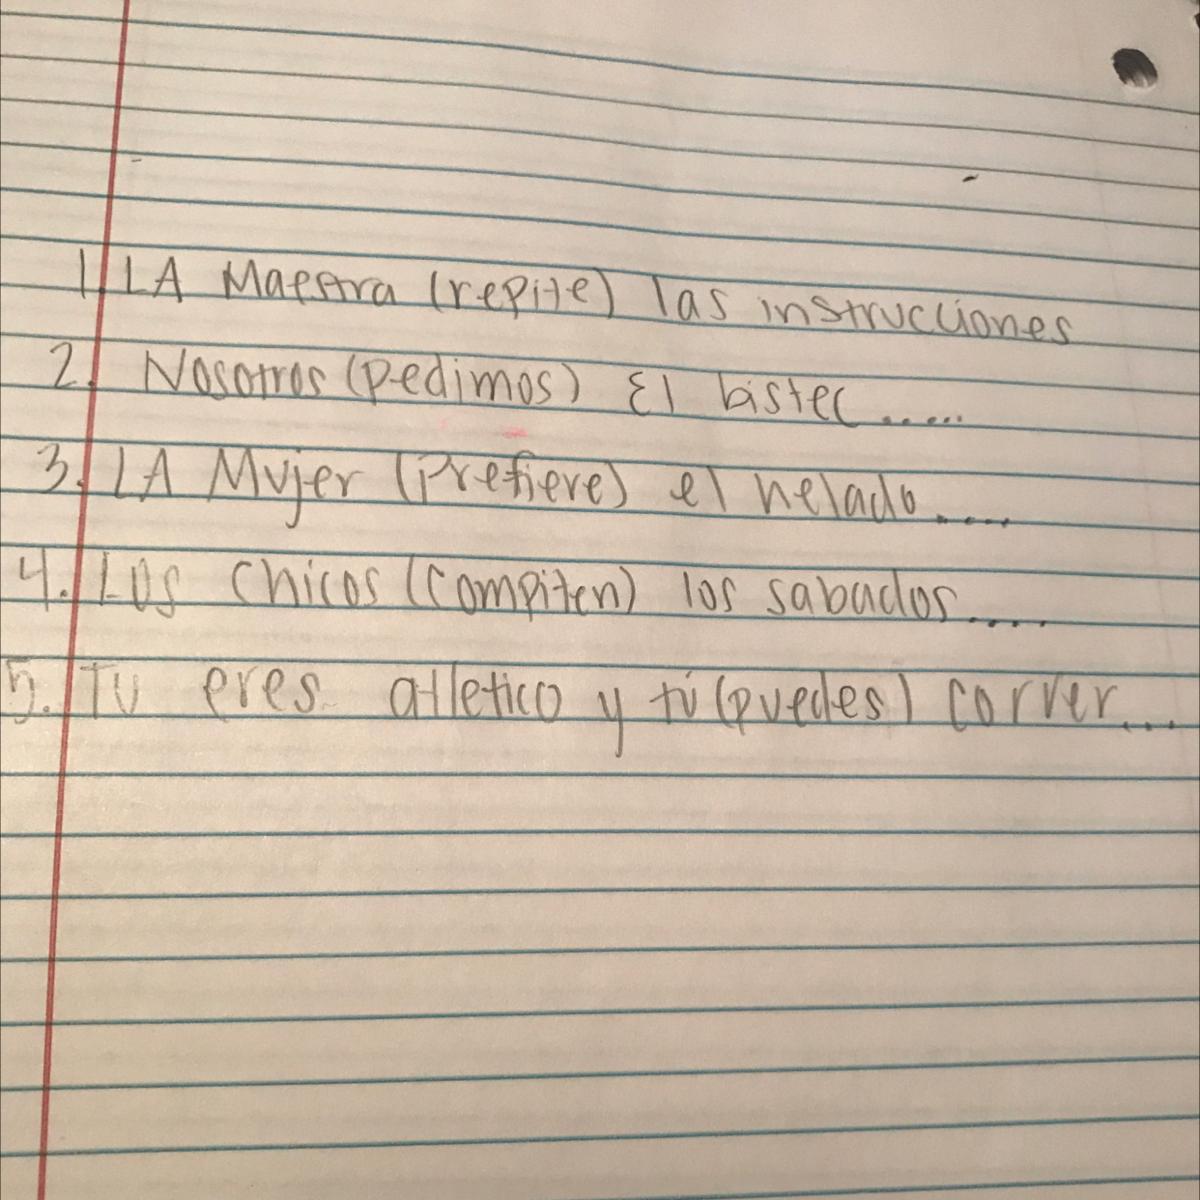 1. LA Maestra (repite) las instrucciones
2. Nosotros (pedimos) El bistec.....
3. LA Mujer (Prefiere) el helado....
4. Los chicos (compiten) los sabados....
5. Tu eres atletico y tú (puedes) correr...